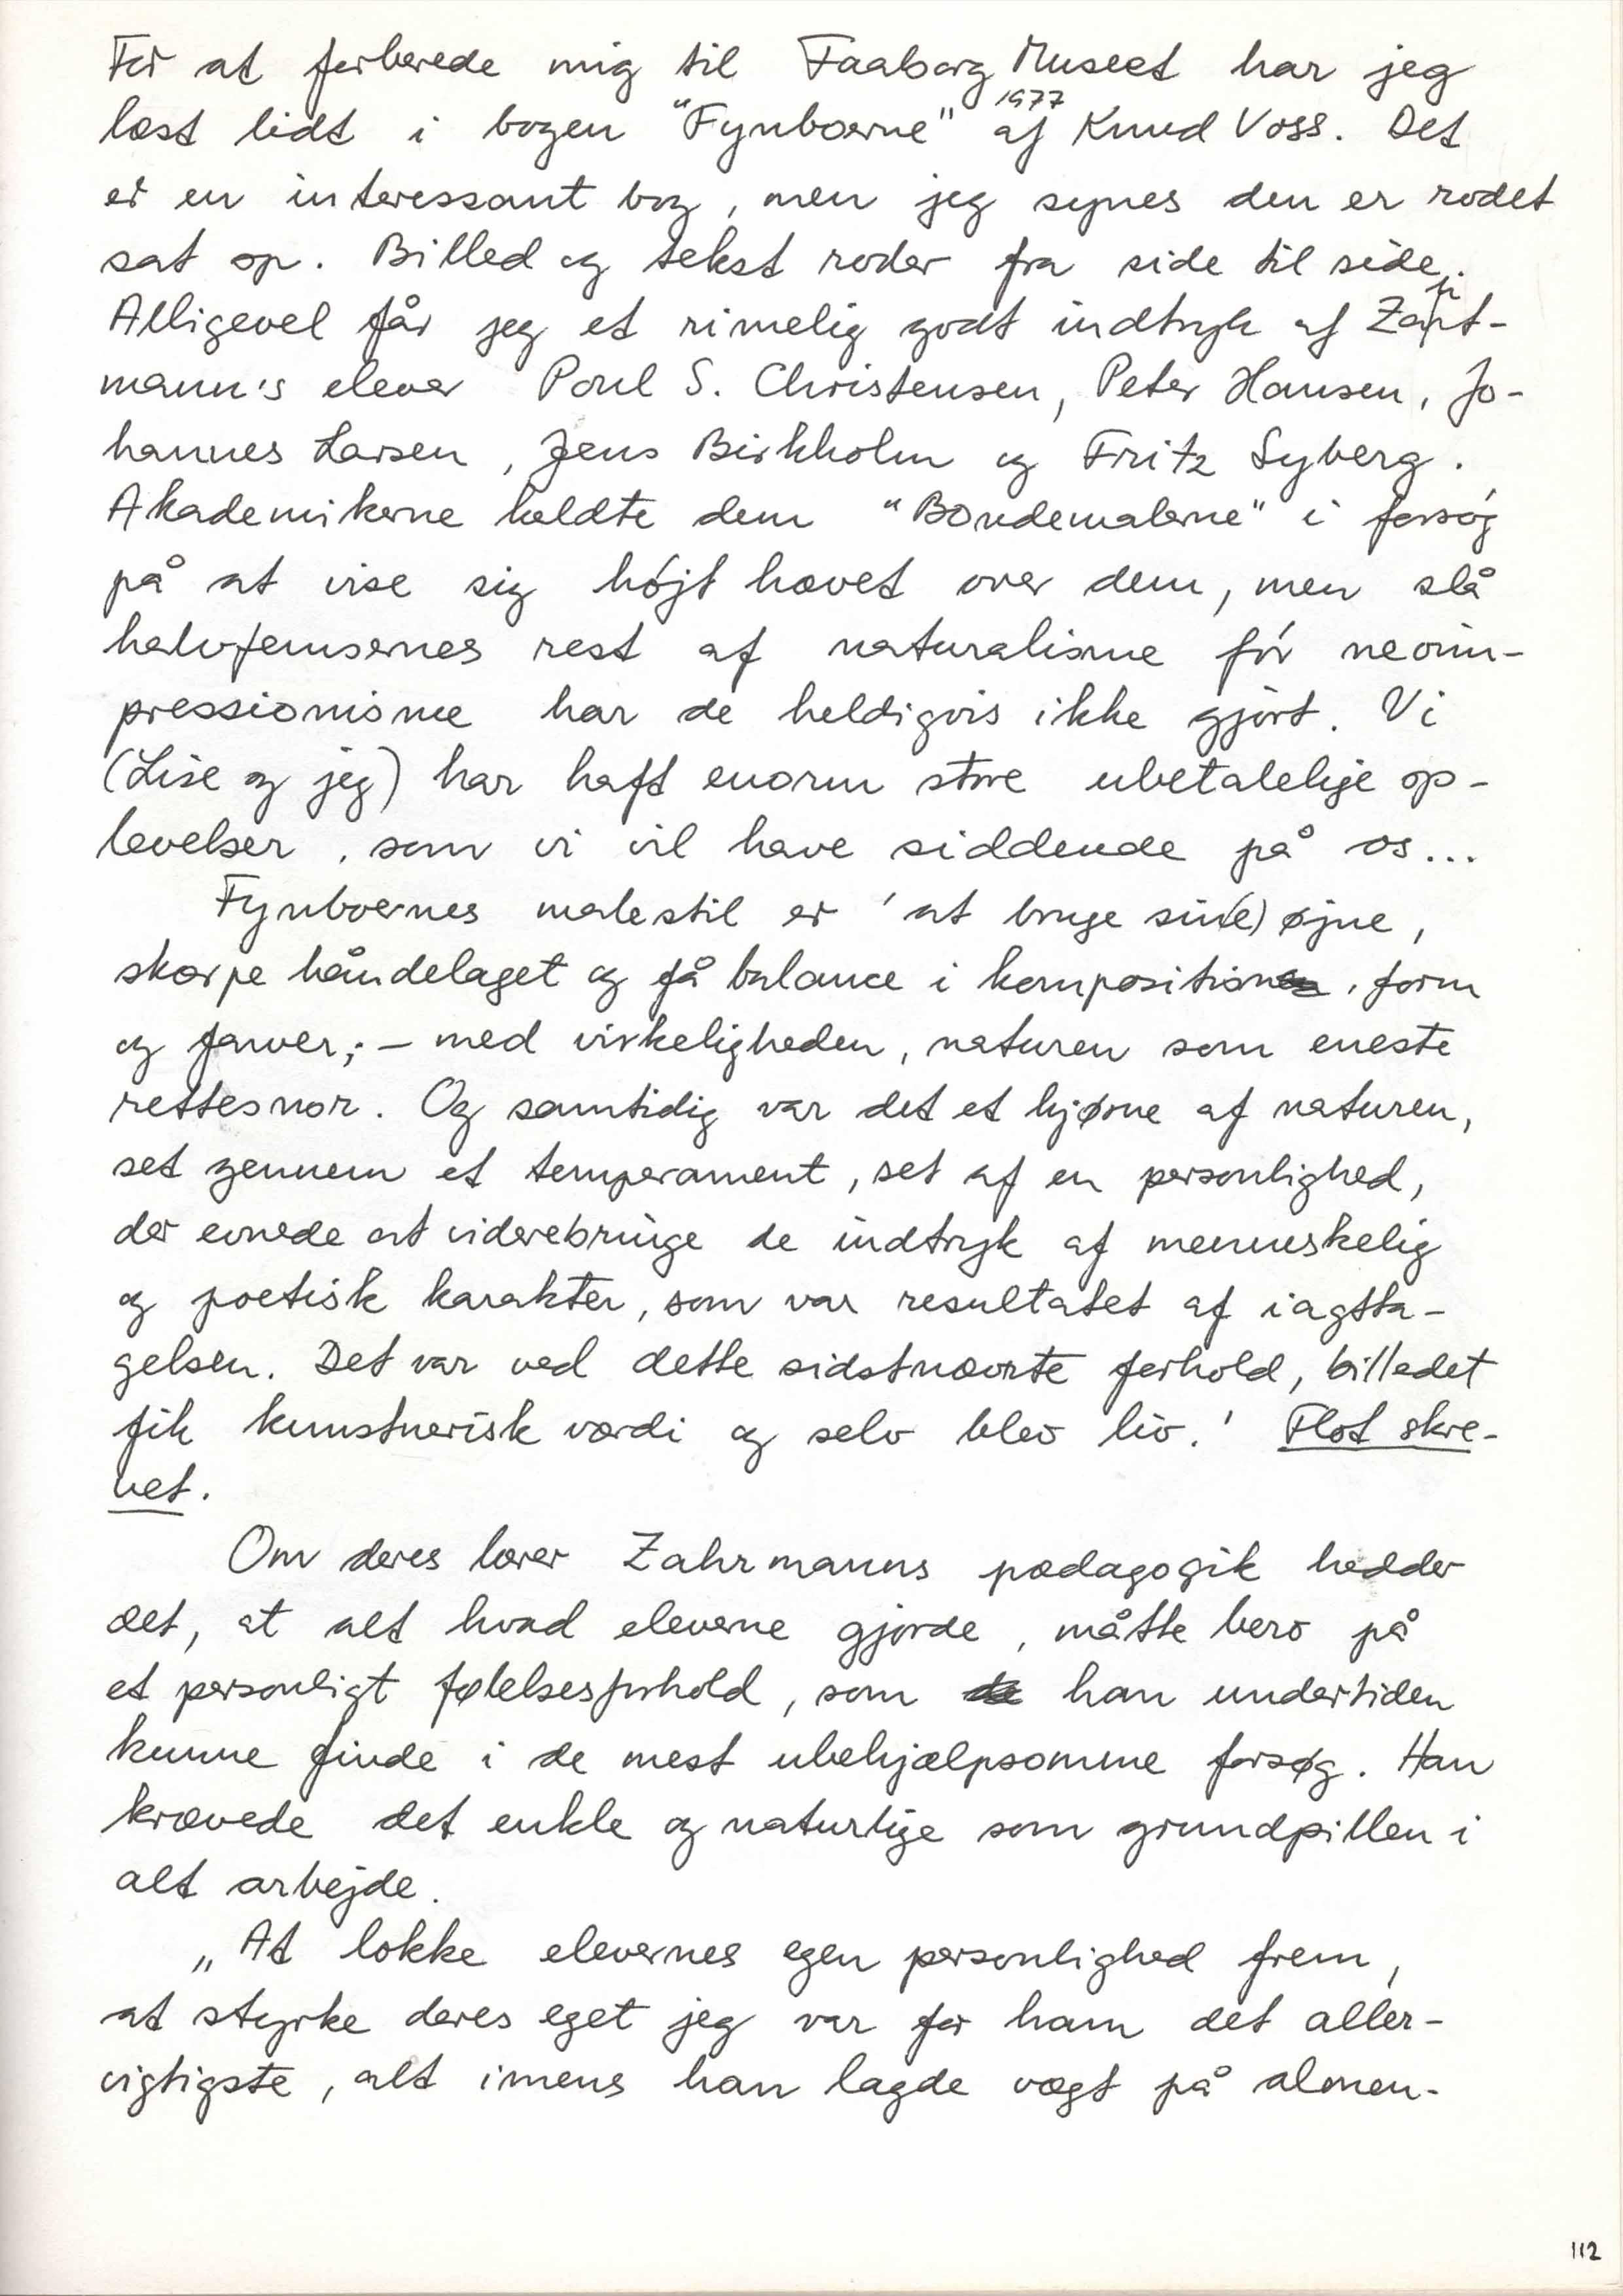 For at forberede mig til Faaborg Museet har jeg
læst lidt i bogen "Fynboerne" 1977 af Knud Voss. Det
er en interessant bog, men jeg synes den er rodet
sat op. Billed og tekst roder fra side til side.
Alligevel får jeg et rimelig godt indtryk af Zart-
mann's elever Poul S. Christensen, Peter Hansen, Jo-
hannes Larsen, Jens Birkholm og Fritz Syberg.
Akademikerne kaldte dem "Bondemalerne" i forsøg
på at vise sig højt hævet over dem, men slå
halvfemsernes rest af naturalisme før neoim-
pressionisme har de heldigvis ikke gjort. Vi
(Lise og jeg) har haft enorm store ubetalelige op-
levelser, som vi vil have siddende på os...
Fynboernes malestil er 'at bruge sin(e) øjne,
skærpe håndelaget og få balance i komposition, form
og farver; – med virkeligheden, naturen som eneste
rettesnor. Og samtidig var det et hjørne af naturen,
set gennem et temperament, set af en personlighed,
der evnede at viderebringe de indtryk af menneskelig
og poetisk karakter, som var resultatet af iagtta-
gelsen. Det var ved dette sidstnævnte forhold, billedet
fik kunstnerisk værdi og selv blev liv.' Flot skre-
vet.
Om deres lærer Zahrmanns pædagogik hedder
det, at alt hvad eleverne gjorde, måtte bero på
et personligt følelsesforhold, som han undertiden
kunne finde i de mest ubehjælpsomme forsøg. Han
krævede det enkle og naturlige som grundpillen i
alt arbejde.
„At lokke elevernes egen personlighed frem,
at styrke deres eget jeg var for ham det aller-
vigtigste, alt imens han lagde vægt på almen-
112